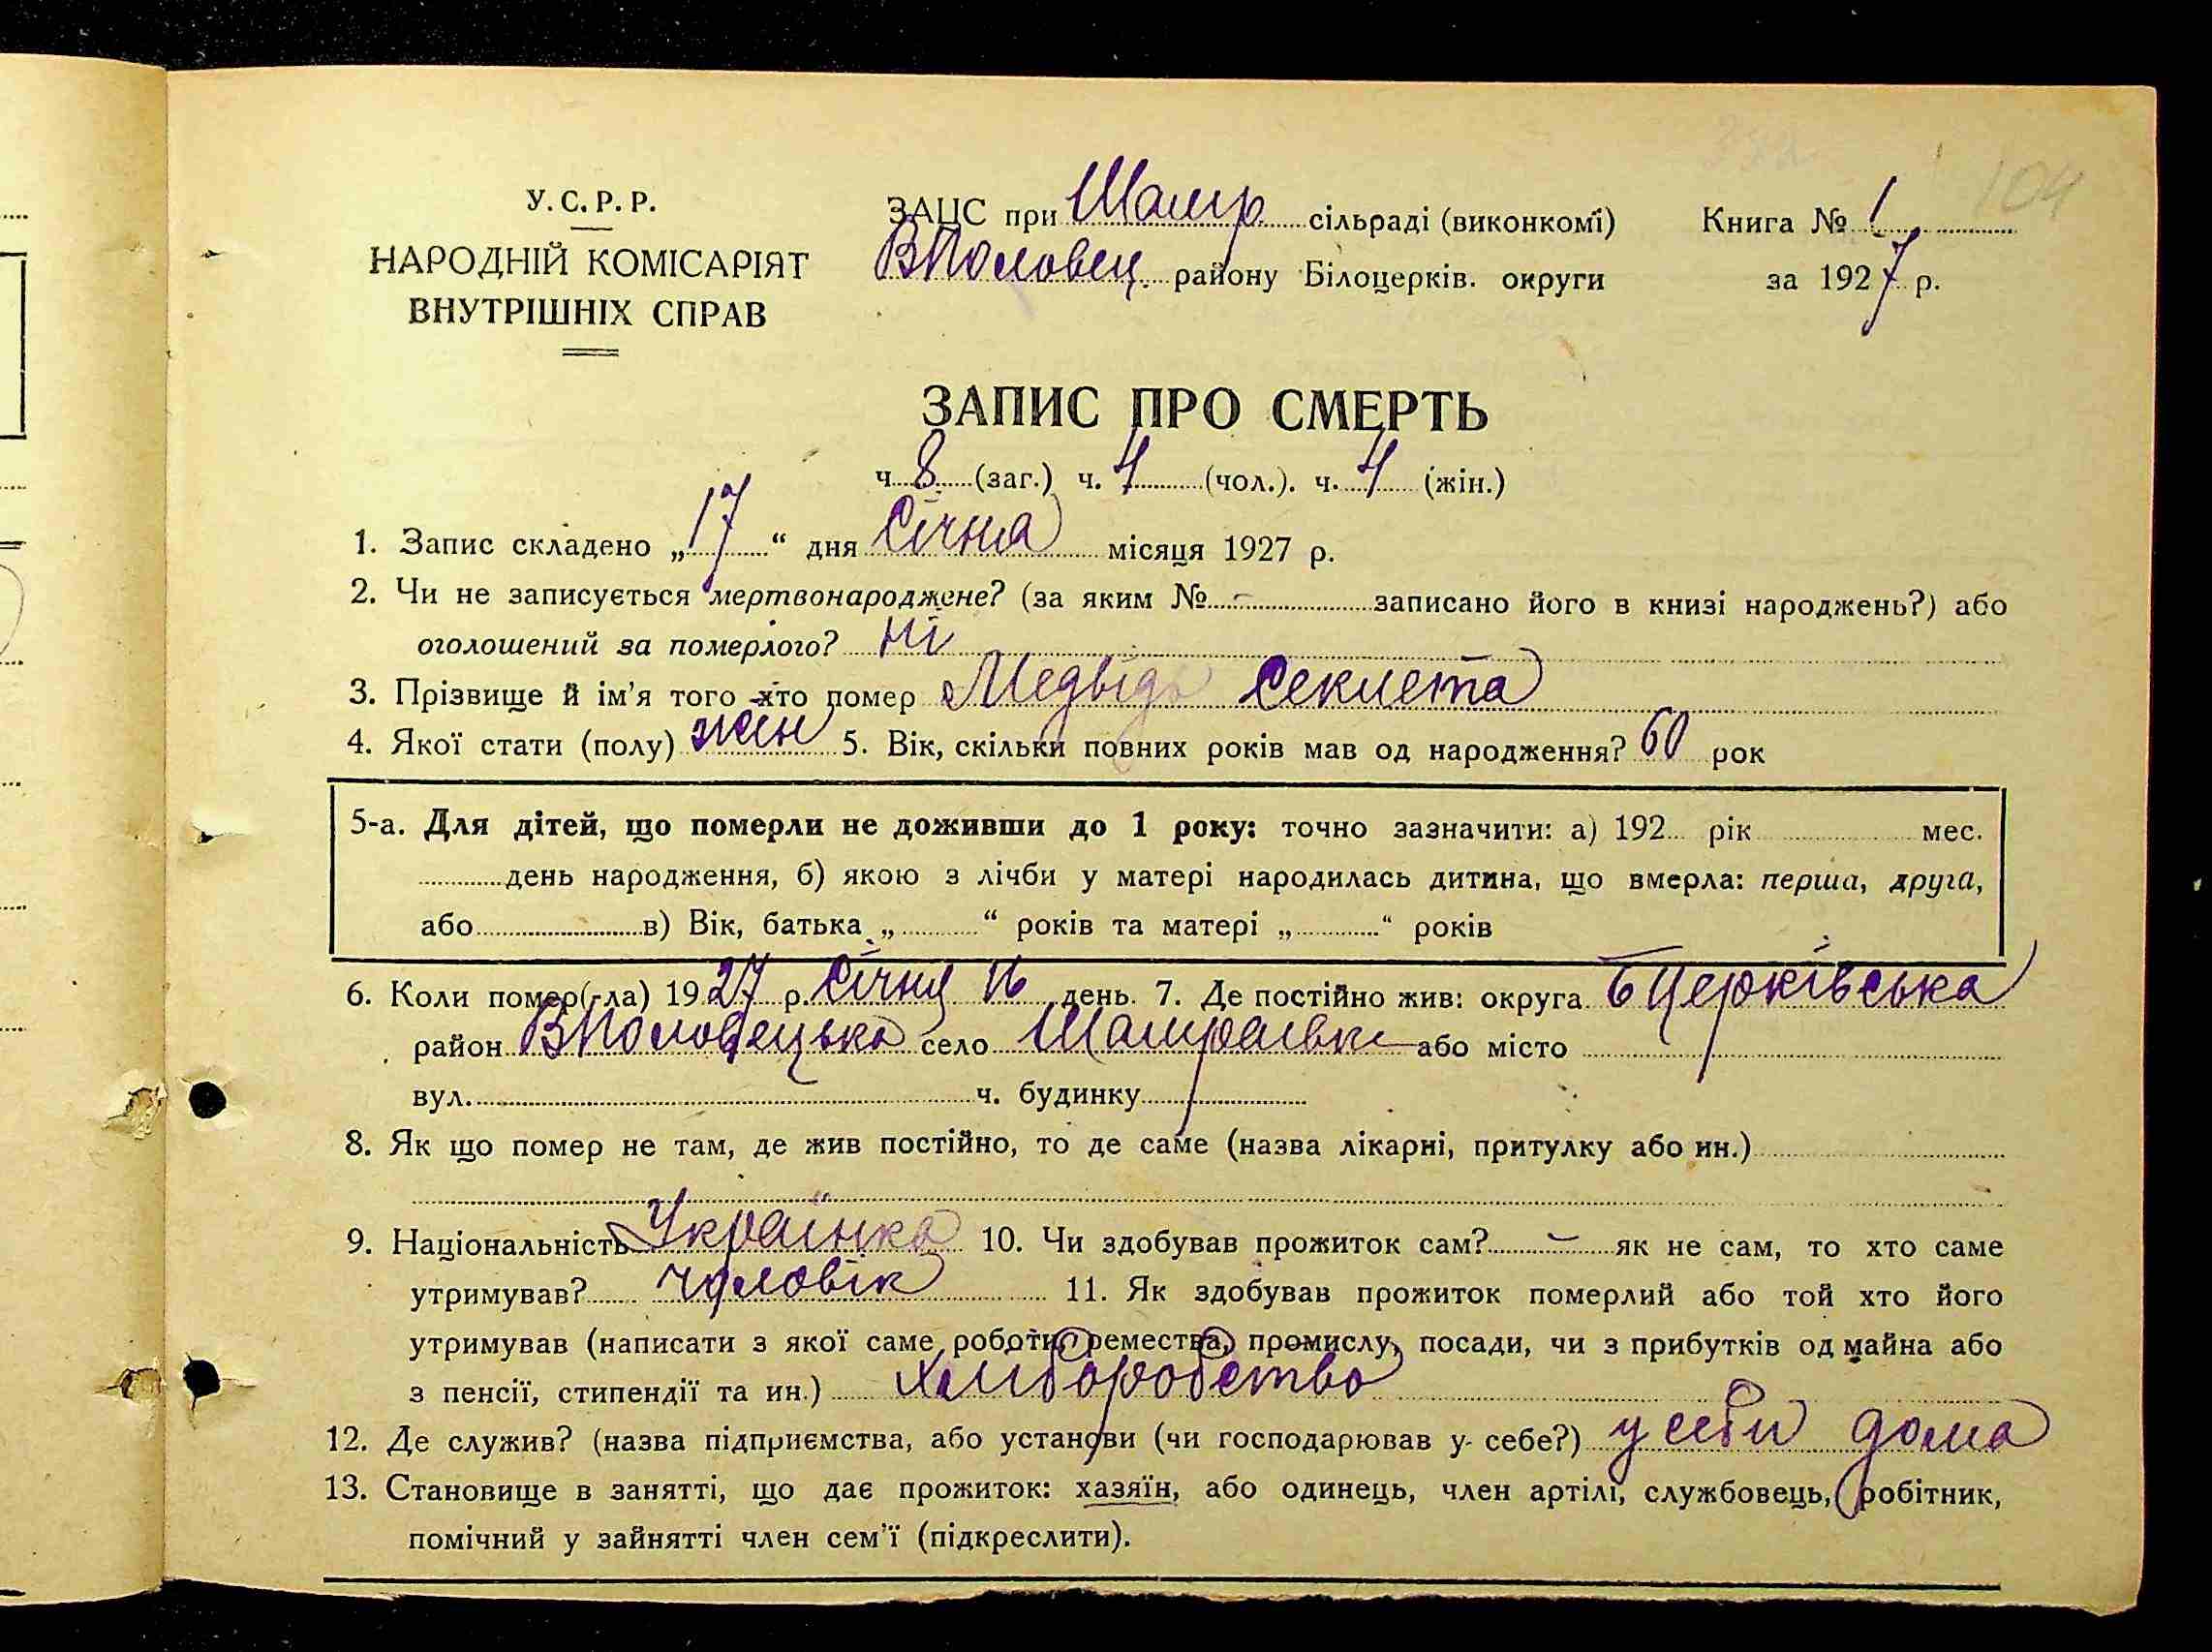 104
У. С. Р. Р.
НАРОДНІЙ КОМІСАРІЯТ
ВНУТРІШНІХ СПРАВ
ЗАЦС при Шамр. сільраді (виконкомі)
ВПоловец. району Білоцерків. округи
Книга № 1
за 1927 р.
ЗАПИС ПРО СМЕРТЬ
ч. 8 (заг.) ч. 4 (чол.). ч. 4 (жін.)
1. Запис складено „17“ дня Січня місяця 1927 р.
2. Чи не записується мертвонароджене? (за яким № - записано його в книзі народжень?) або
оголошений за померлого? ні
3. Прізвище й ім'я того хто помер Медвідь Секлета
4. Якої стати (полу) жін 5. Вік, скільки повних років мав од народження? 60 рок
5-а. Для дітей, що померли не доживши до 1 року: точно зазначити: а) 192 рік мес.
день народження, б) якою з лічби у матері народилась дитина, що вмерла: перша, друга,
або в) Вік, батька „ “ років та матері „ “ років
6. Коли помер(-ла) 1927 р. Січня 16 день. 7. Де постійно жив: округа БЦерківська
район ВПоловецько село Шамраївка або місто
вул. ч. будинку
8. Як що помер не там, де жив постійно, то де саме (назва лікарні, притулку або ин.)
9. Національність Українка 10. Чи здобував прожиток сам? - як не сам, то хто саме
утримував? чоловік 11. Як здобував прожиток померлий або той хто його
утримував (написати з якої саме роботи, ремества, промислу, посади, чи з прибутків од майна або
з пенсії, стипендії та ин.) хліборобство
12. Де служив? (назва підприємства, або установи (чи господарював у себе?) у себи дома
13. Становище в занятті, що дає прожиток: хазяїн, або одинець, член артілі, службовець, робітник,
помічний у зайнятті член сем'ї (підкреслити).